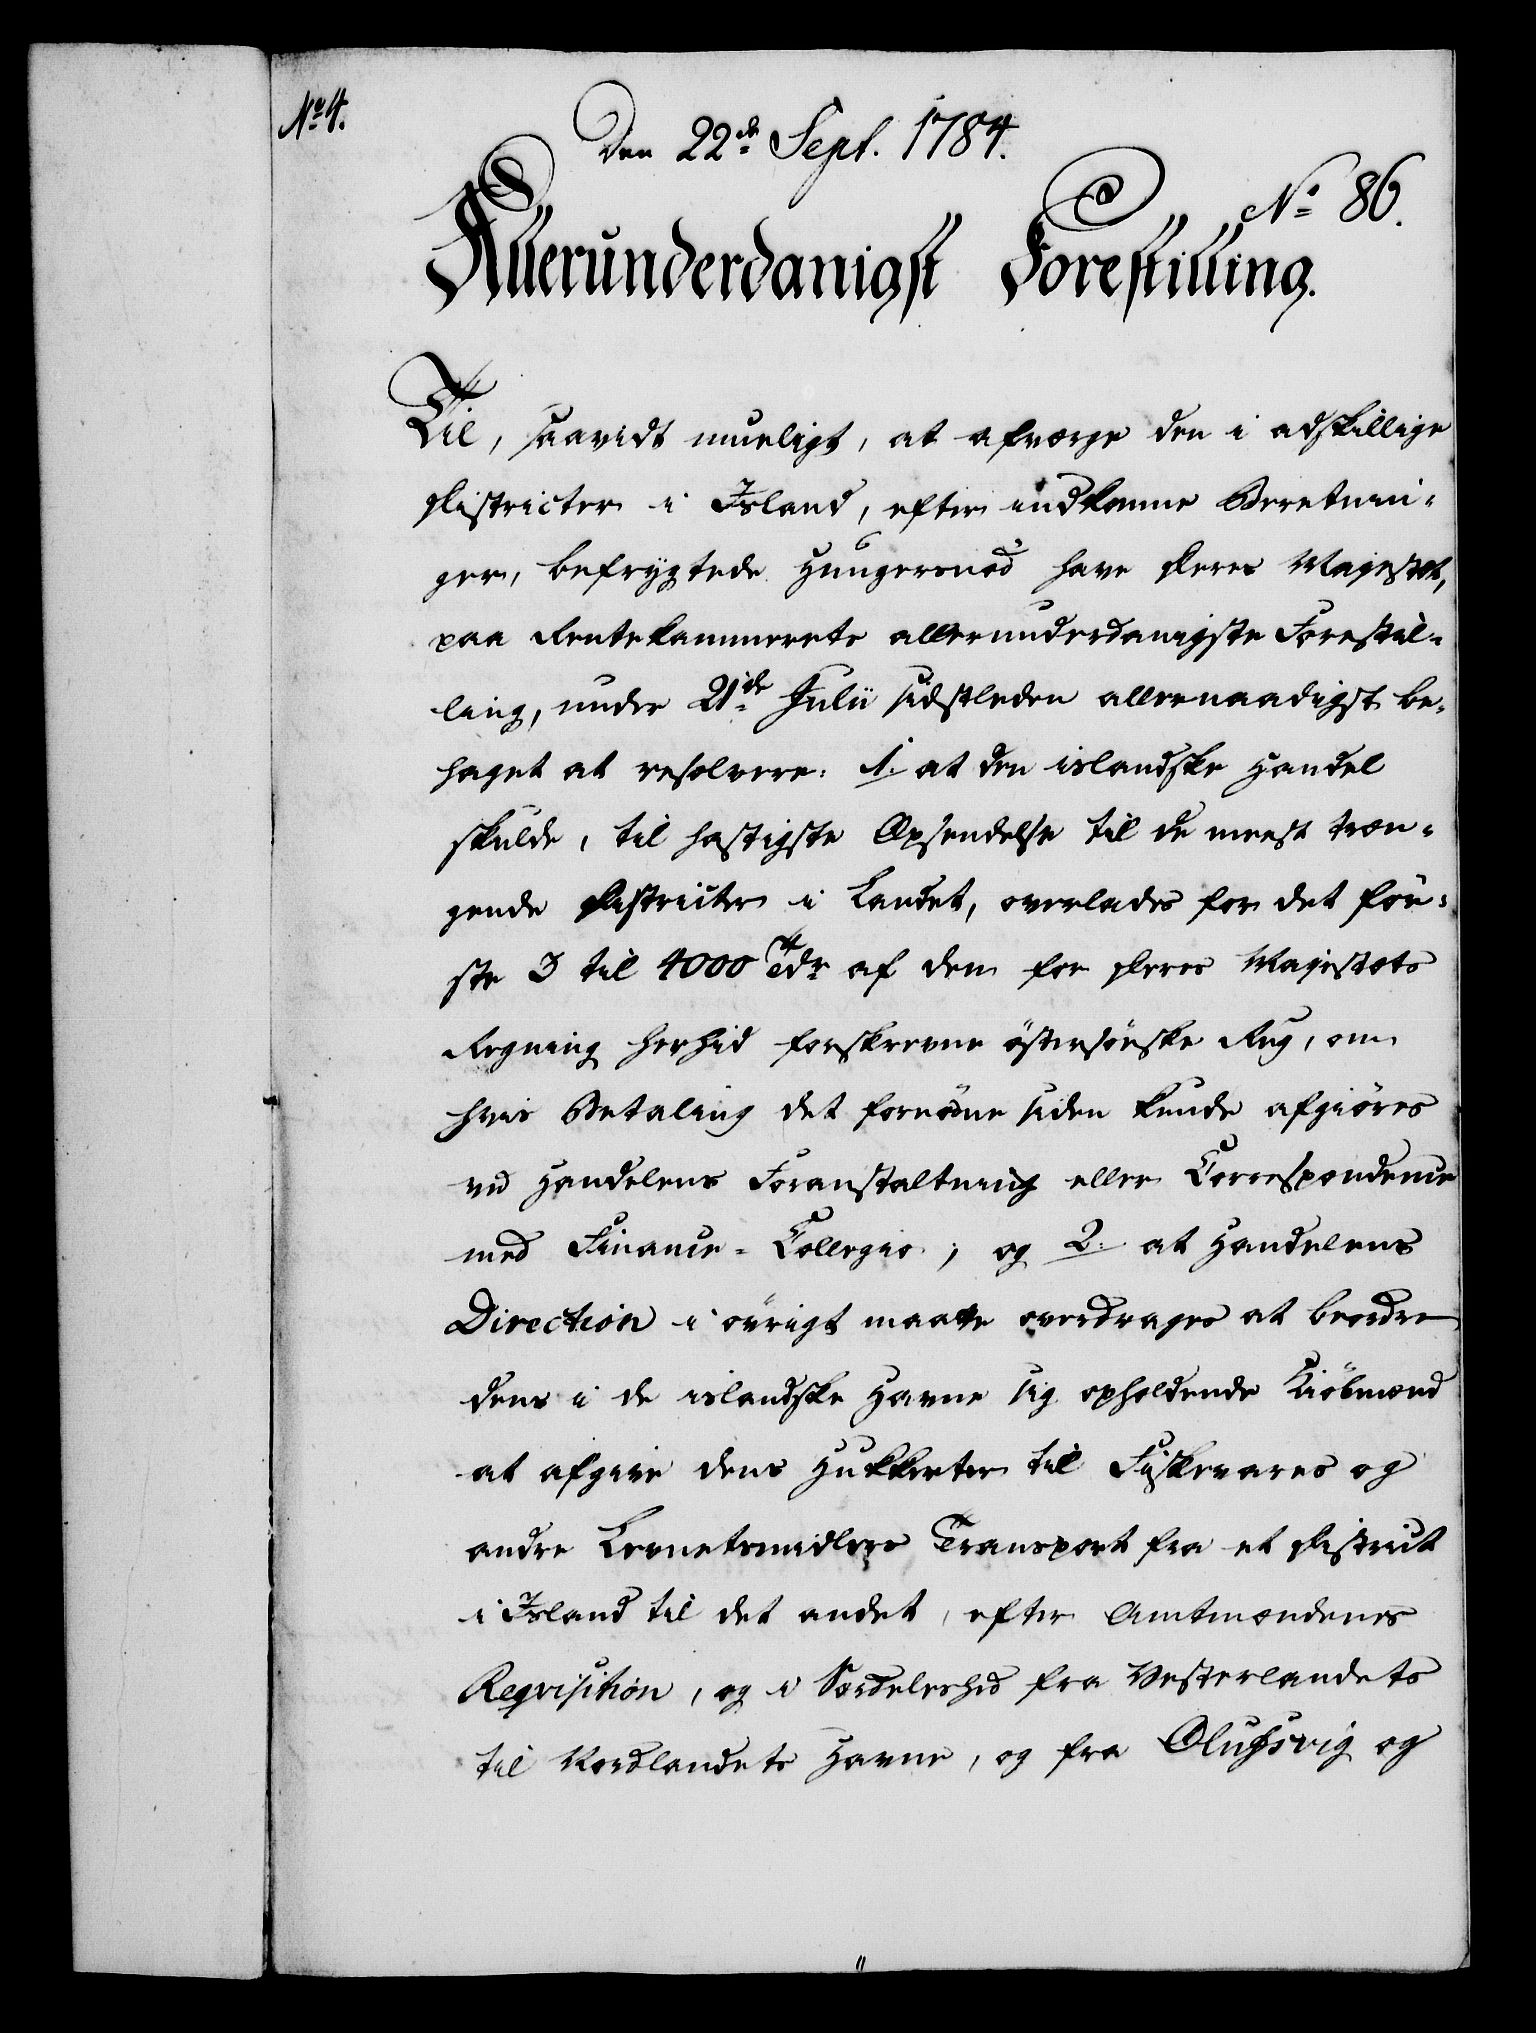 No 4.
Den 22de Sept. 1784.
No 86.
Allerunderdanigst Forestilling.
Til, saavidt mueligt, at afværge den i adskillige
Districter i Island, efter indkomne Beretnin-
ger, befrygtede Hungersnød have Deres Majestæt,
paa Rentekammerets allerunderdanigste Forestil-
ling, under 21de Julii sidstleden allernaadigst be-
haget at resolvere: 1. at den islandske Handel
skulde, til hastigste Opsendelse til de meest træn-
gende Districter i Landet, overlades for det før-
ste 3 til 4000 Tdr af den for Deres Majestæts
Regning herhid forskrevne östersöeske Rug, om
hvis Betaling det fornødne siden kunde afgiöres
ved Handelens Foranstaltning eller Correspondence
med Finance-Collegio; og 2. at Handelens
Direction i övrigt maatte overdrages at beordre
dens i de islandske Havne sig opholdende Kiöbmænd
at afgive dens Hukkerter til Fiskevares og
andre Levnetsmidlers Transport fra et District
i Island til det andet, efter Amtmændenes
Reqvisition, og i Særdeleshed fra Vesterlandets
til Nordlandets Havne, og fra Olufsvig og